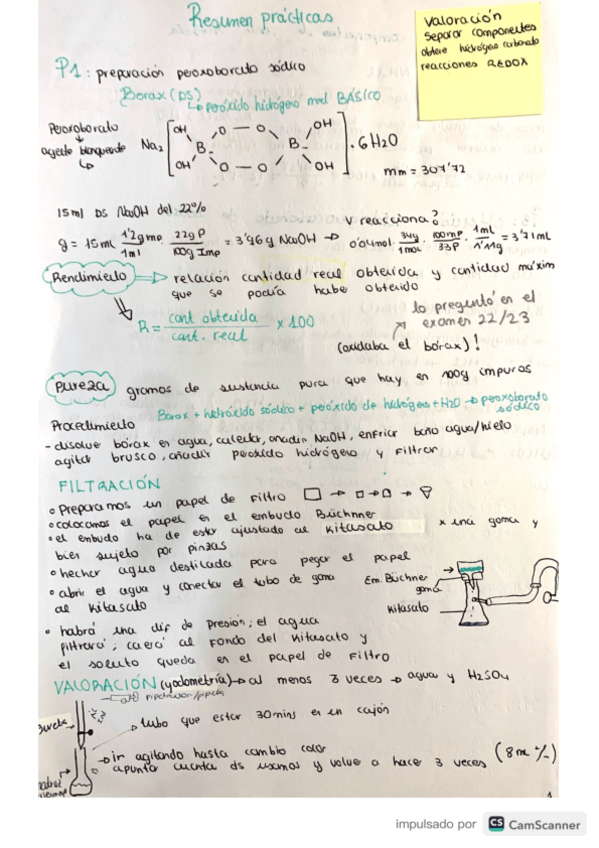 Resumen prácticas
Valoración
Separar componentes
obtiene hidrógeno carbonato
reacciones REDOX
P1: preparación peroxoborato sódico
Borax (DS)
↳ peróxido hidrógeno mvl BÁSICO
Peroxoborato
agente blanqueante
Na2 [OH OH B O — O O — O B OH OH] · 6H2O
mm = 307'72
15ml DS NaOH del 22%
g = 15ml 1'2g mp / 1ml · 22g P / 100g Imp = 3'96g NaOH →
V reacciona?
0'04mol · 34g / 1mol · 100mP / 33P · 1mL / 1'11g = 3'71mL
Rendimiento → relación cantidad real obtenida y cantidad máxim
que se podía haber obtenido
R = cant obtenida / cant. real x 100
lo preguntó en el
examen 22/23
(oxidaba el bórax)!
Pureza gramos de sustancia pura que hay en 100g impuros
Procedimiento
Borax + hidróxido sódico + peróxido de hidrógeno + H2O → peroxoborato
sódico
- disolve bórax en agua, calentar, anadir NaOH, enfriar baño agua/hielo
agitar brusco, añadir peróxido hidrógeno y filtrar
FILTRACIÓN
o preparamos un papel de filtro
o colocamos el papel en el embudo Büchnner
o el embudo ha de estar ajustado al Kitasato x una goma y
bien sujeto por pinzas
o hechar agua destilada para pegar el papel
o abrir el agua y conectar el tubo de goma
al Kitasato
Em. Büchner
goma
Kitasato
o habrá una dif de presión; el agua
filtrará; caerá al fondo del Kitasato y
el soluto queda en el papel de filtro
VALORACIÓN (yodometría) → al menos 3 veces → agua y H2SO4
tubo que estar 30mins en un cajón
→ ir agitando hasta cambio color
apunta cuenta ds usamos y volve a hacer 3 veces
1
impulsado por CS CamScanner